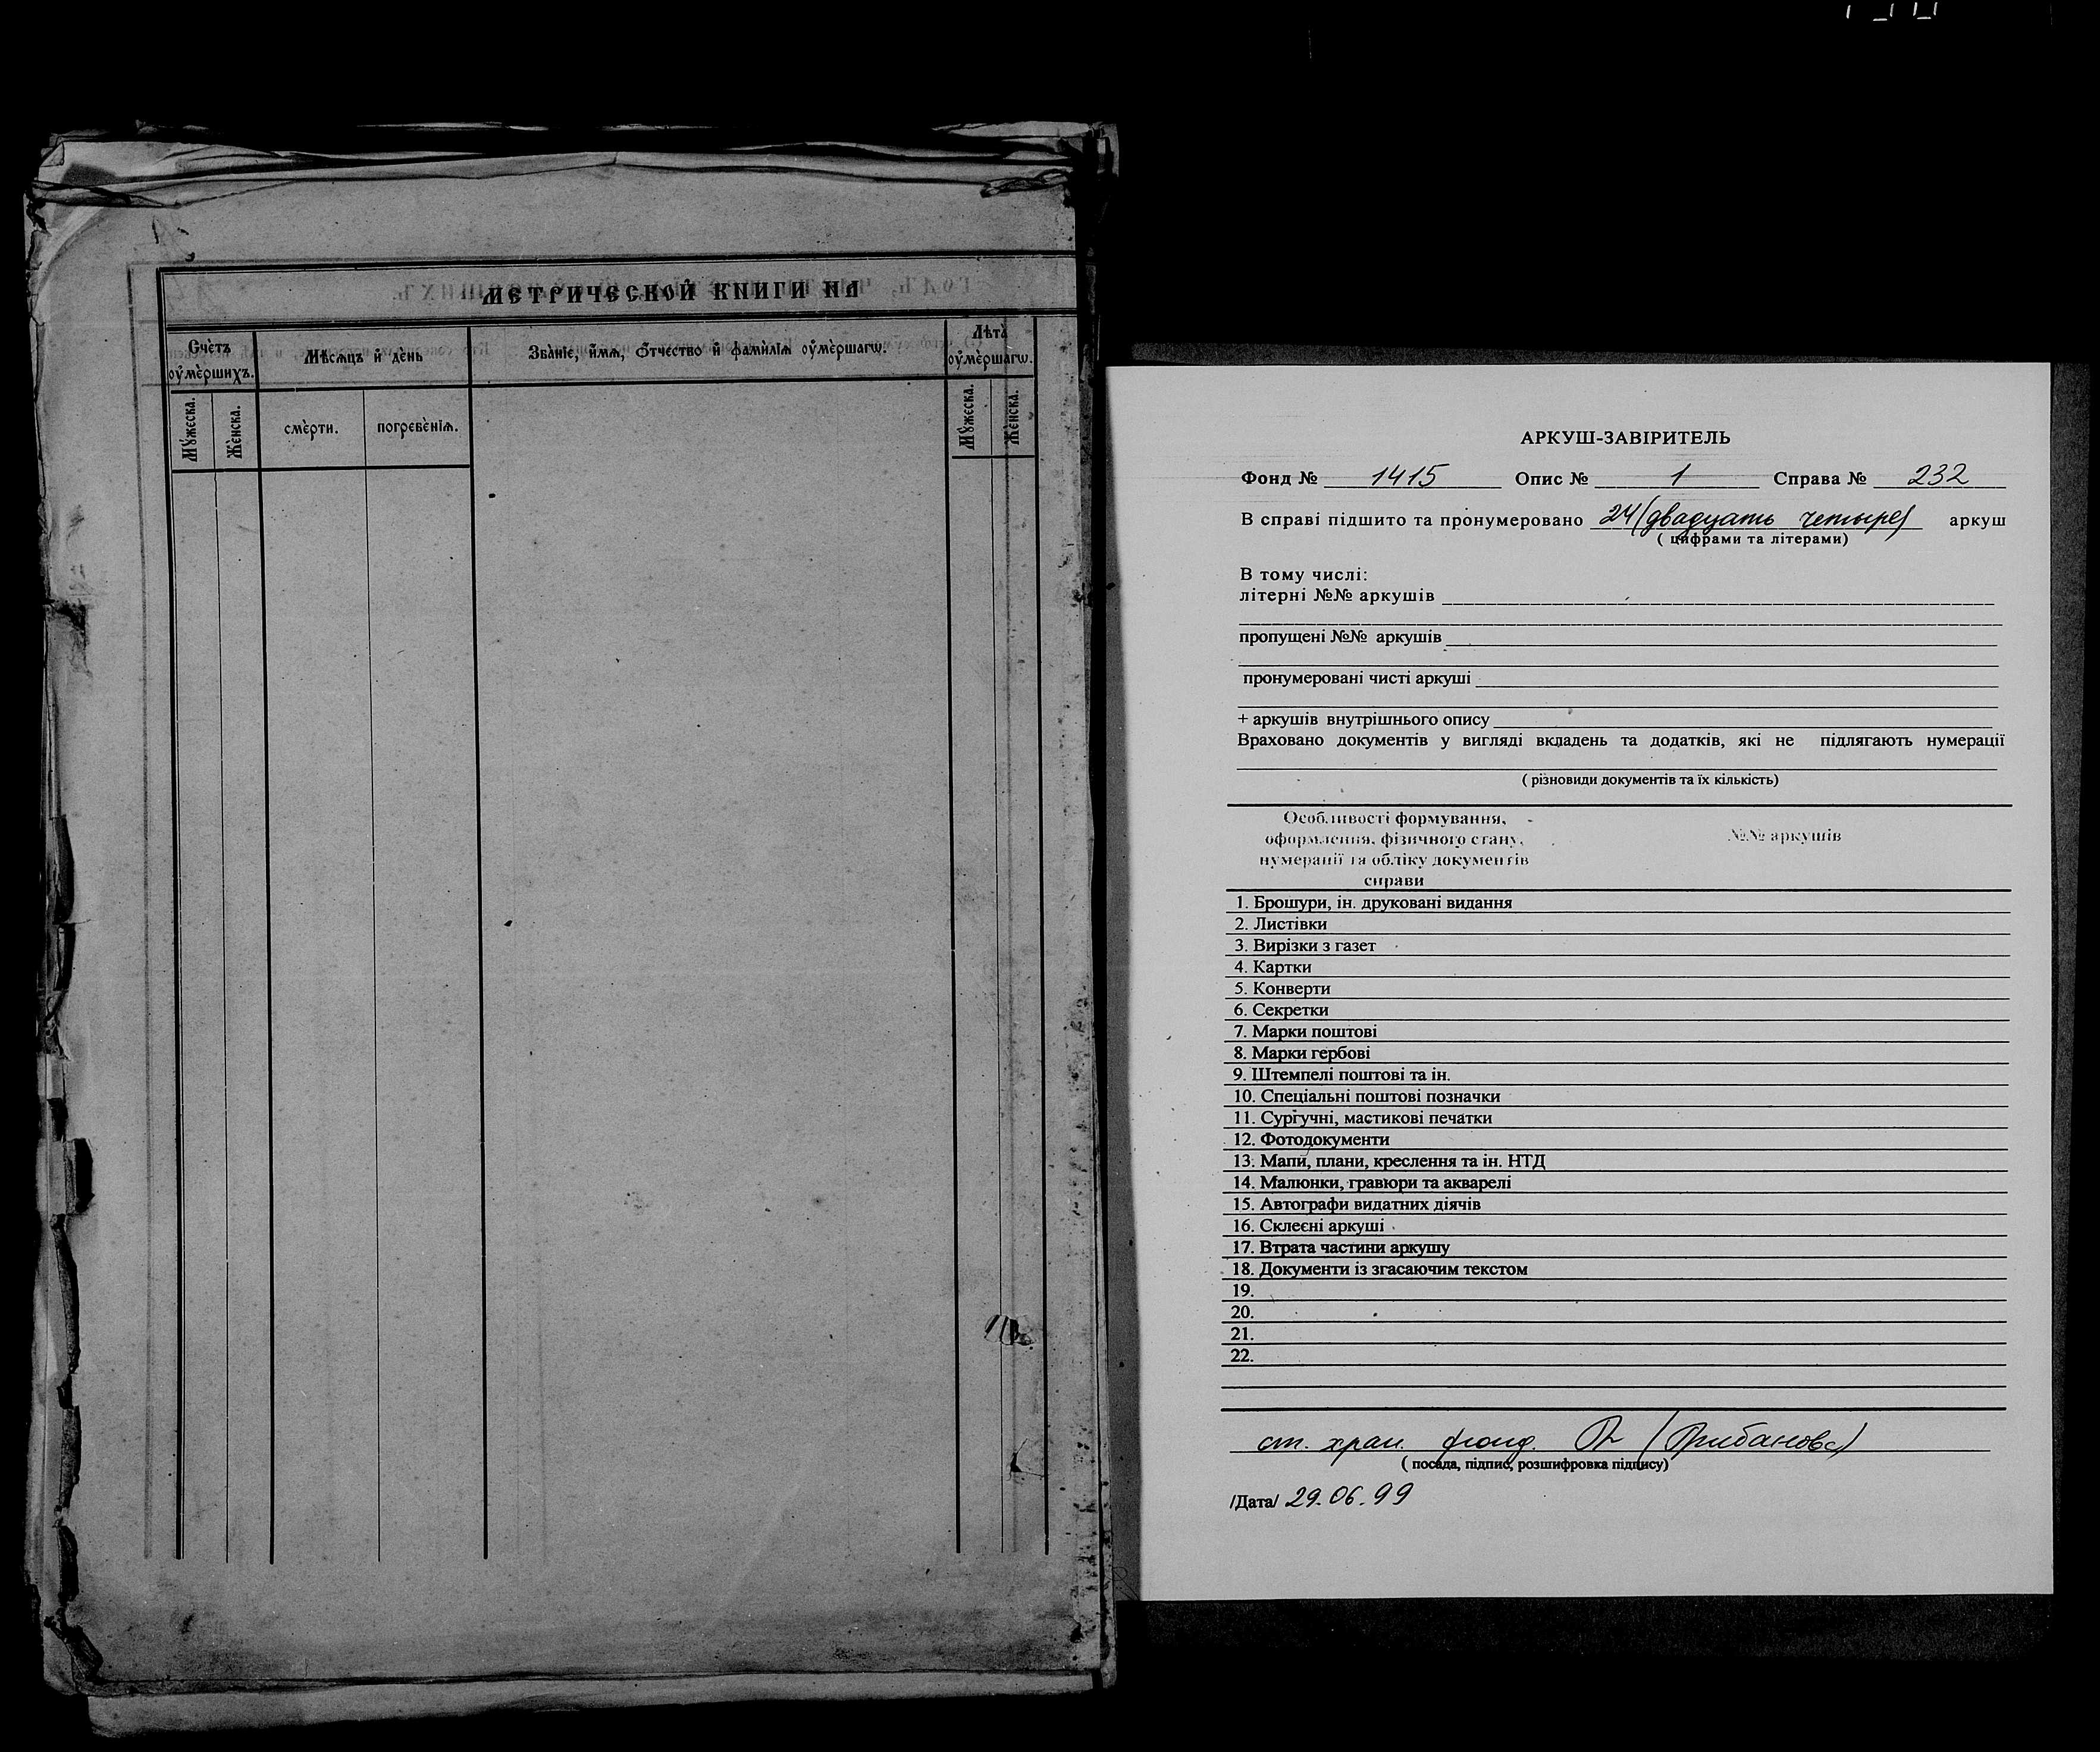 МЕТРИЧЕСКОЙ КНИГИ НА
Счѐтъ оу҆мѐршихъ.
Мѣсѧцъ и҆ дѐнь
Зва̀нїе, и҆́мѧ, ѻ҆́тчество и҆ фамѝлїѧ оу҆мѐршагѡ.
Лѣта̀ оу҆мѐршагѡ.
Мꙋ́жеска.
Жѐнска.
смѐрти.
погребѐнїѧ.
Мꙋ́жеска.
Жѐнска.
АРКУШ-ЗАВІРИТЕЛЬ
Фонд № 1415 Опис № 1 Справа № 232
В справі підшито та пронумеровано 24 (двадцать четыре) аркуш
( цифрами та літерами)
В тому числі:
літерні №№ аркушів
пропущені №№ аркушів
пронумеровані чисті аркуші
+ аркушів внутрішнього опису
Враховано документів у вигляді вкладень та додатків, які не підлягають нумерації
( різновиди документів та їх кількість)
Особливості формування, №№ аркушів
оформлення, фізичного стану,
нумерації та обліку документів
справи
1. Брошури, ін. друковані видання
2. Листівки
3. Вирізки з газет
4. Картки
5. Конверти
6. Секретки
7. Марки поштові
8. Марки гербові
9. Штемпелі поштові та ін.
10. Спеціальні поштові позначки
11. Сургучні, мастикові печатки
12. Фотодокументи
13. Мапи, плани, креслення та ін. НТД
14. Малюнки, гравюри та акварелі
15. Автографи видатних діячів
16. Склеєні аркуші
17. Втрата частини аркушу
18. Документи із згасаючим текстом
19.
20.
21.
22.
ст. хран. фонд.
( посада, підпис, розшифровка підпису)
/Дата/ 29.06.99